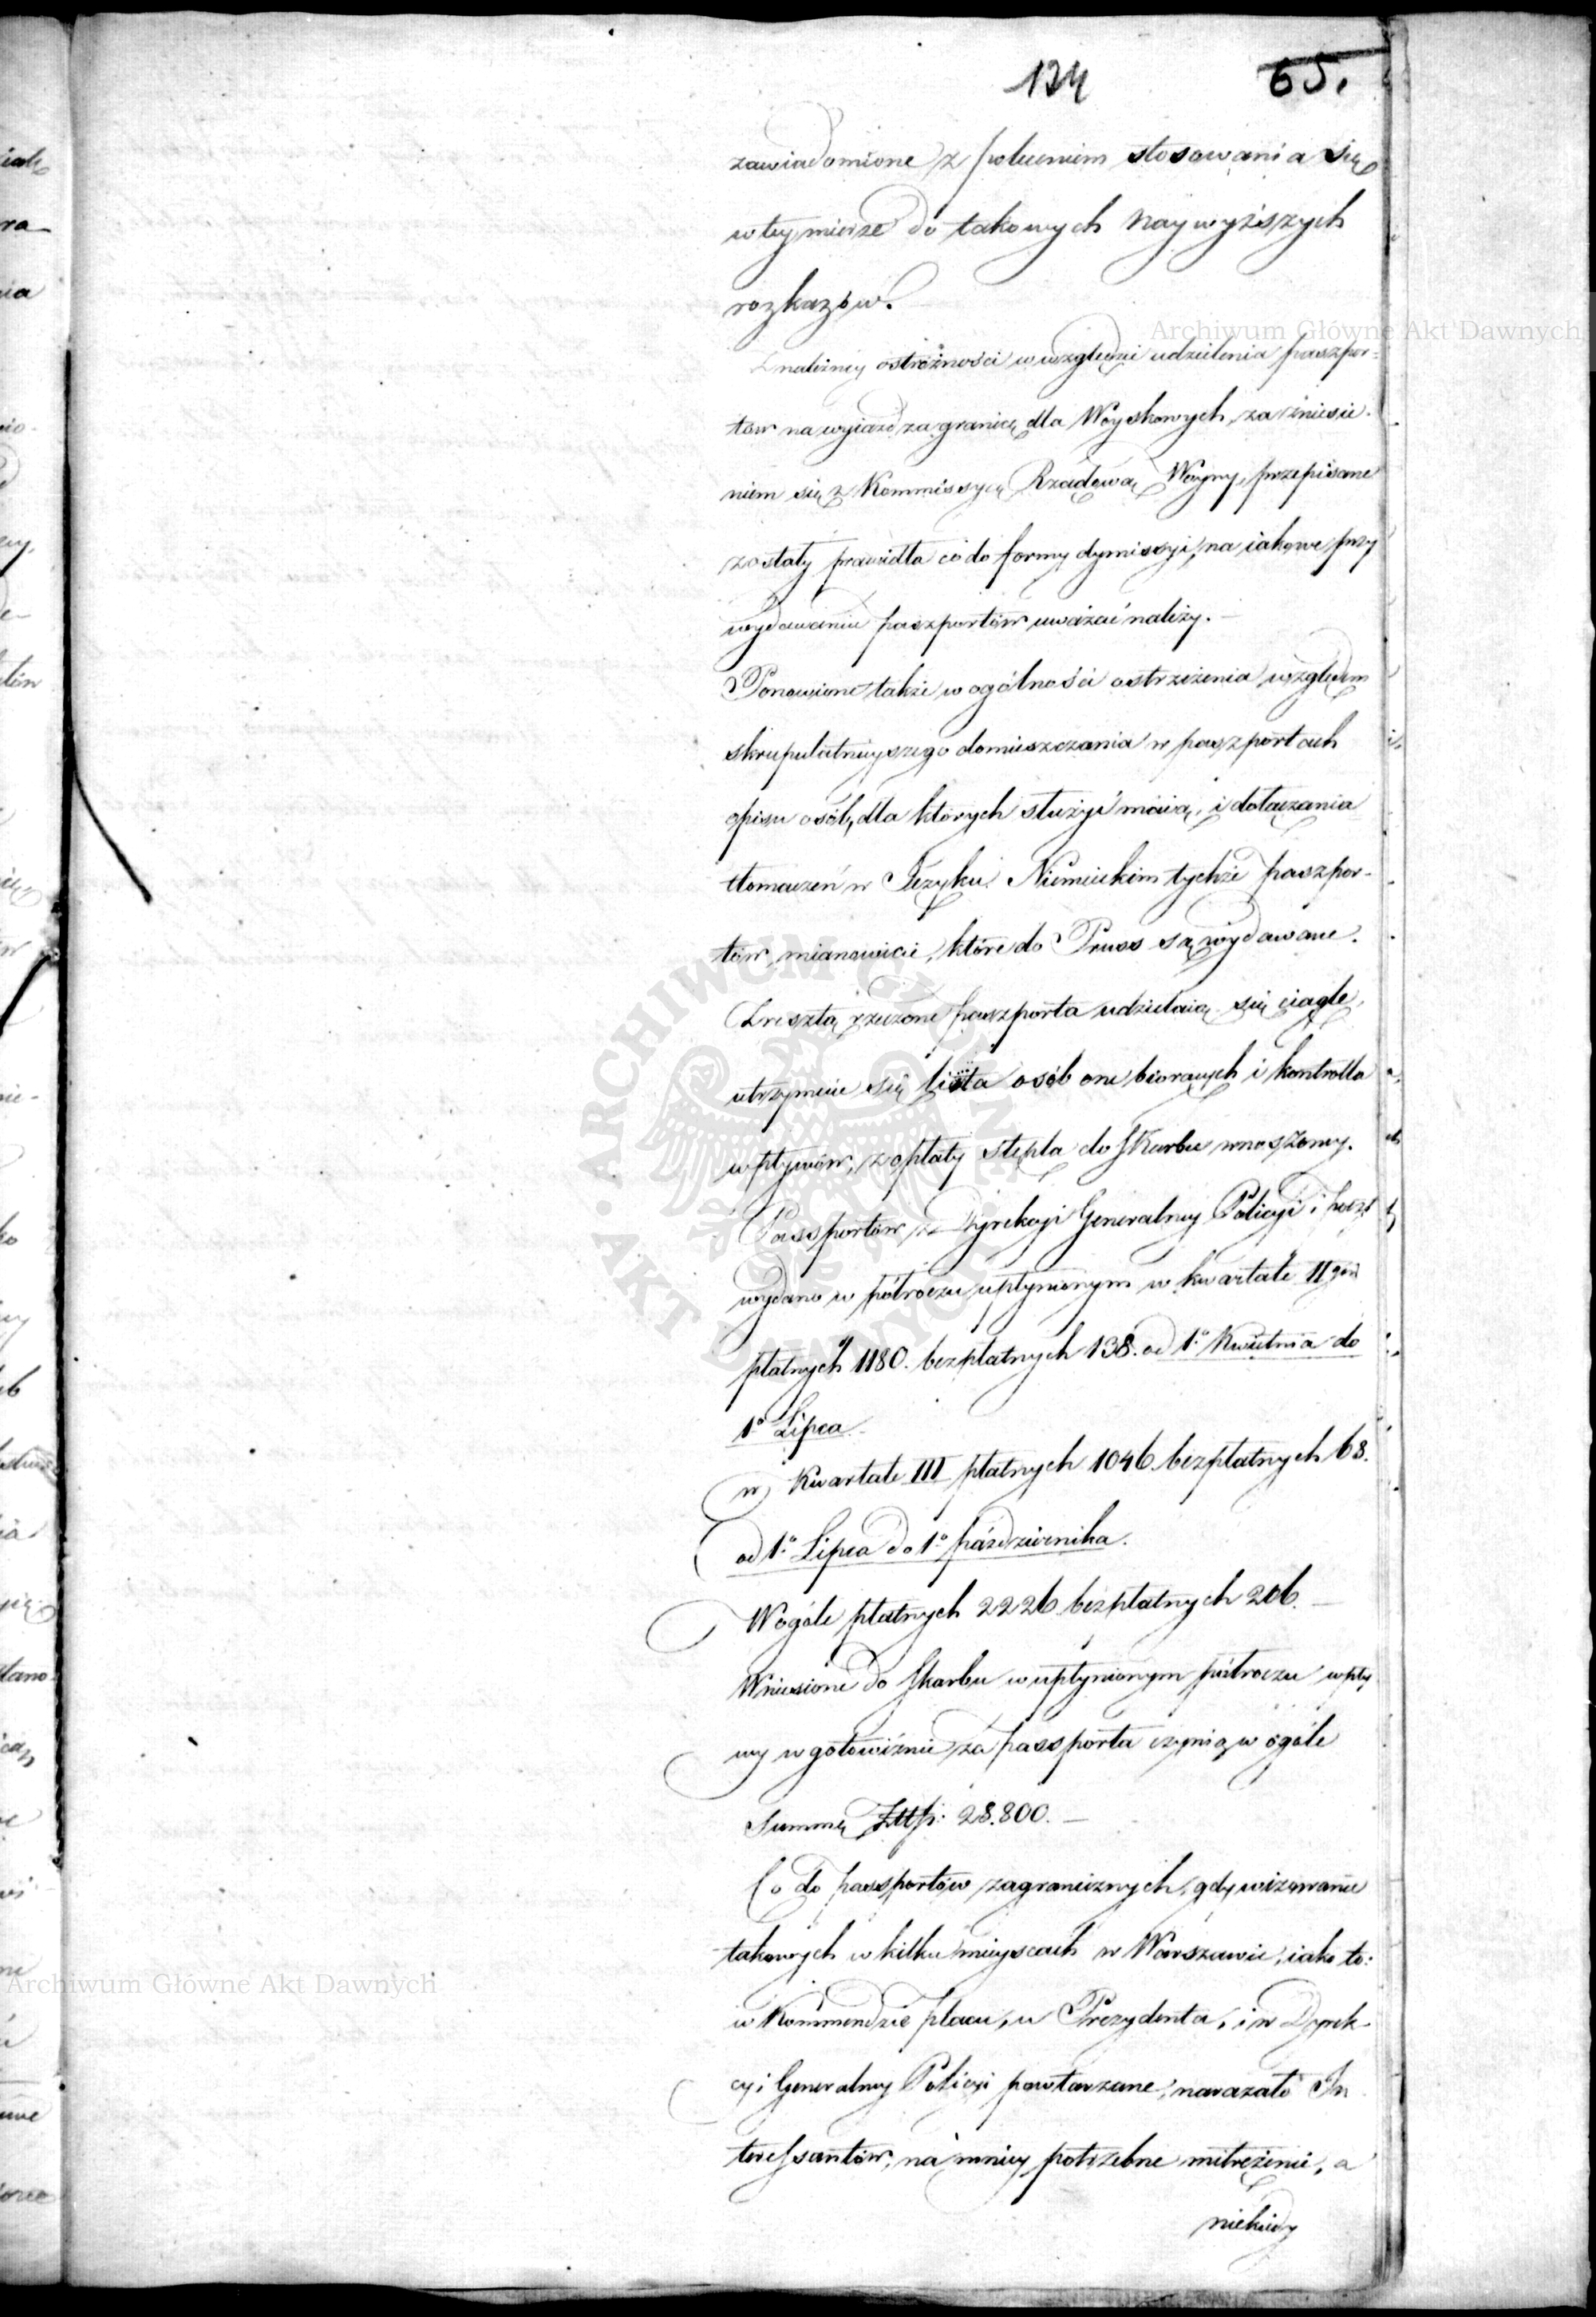 134 65.
zawiadomione z poleceniem stosowania się
w tey mierze do takowych Naywyższych
rozkazów.
Z należney ostrożności w względzie udzielenia paszpor-
tów na wyiazd za granicę dla Woyskowych, za zniesie-
niem się z Kommissyą Rządową Woyny, przepisane
zostały prawidła co do formy dymissyi, na iakowe przy
wydawaniu paszportów uważać należy. —
Ponowione także w ogólności ostrzeżenia względem
skrupulatnieyszego domieszczania w paszportach
opisu osób, dla których służyć maią, i dołączania
tłomaczeń w Języku Niemieckim tychże paszpor-
tów, mianowicie, które do Pruss są wydawane.
Zresztą rzeczone paszporta udzielaią się ciągle,
utrzymuie się lista osób one biorących i kontrolla
wpływów, z opłaty stępla do Skarbu wnoszoney.
Passportów z Dyrekcyi Generalney Policyi i Poczt
wydano w półroczu upłynionym w kwartale II gim
płatnych 1180. bezpłatnych 138. od 1o Kwietnia do
1o Lipca.
w Kwartale III płatnych 1046. bezpłatnych 68.
od 1o Lipca do 1o Października.
Wogóle płatnych 2226 bezpłatnych 206. —
Wniesione do Skarbu w upłynionym półroczu wpły
wy w gotowiznie za passporta czynią w ogóle
Summę Zttp: 28.800. —
Co do passportów zagranicznych, gdy wizowanie
takowych w kilku mieyscach w Warszawie, iako to:
w Kommendzie placu, u Prezydenta, i w Dyrek-
cyi Generalney Policyi powtarzane, narażało In
teressantów, na mniey potrzebne mitrężenie, a
niekiedy
Archiwum Główne Akt Dawnych
Archiwum Główne Akt Dawnych
ARCHIWUM GŁÓWNE AKT DAWNYCH